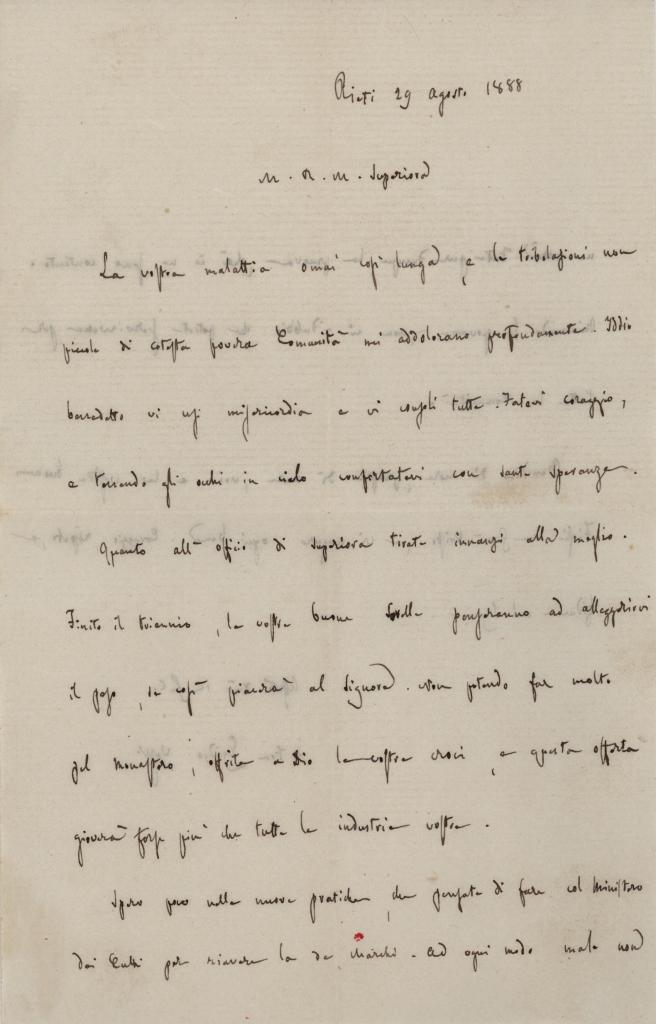 Rieti 29 Agosto 1888
M. R. M. Superiora
La vostra malattia omai così lunga, e le tribolazioni non
piccole di cotesta povera Comunità mi addolorano profondamente. Iddio
benedetto vi usi misericordia e vi consoli tutte. Fatevi coraggio,
e tenendo gli occhi in cielo confortatevi con sante speranze.
Quanto all'officio di Superiora tirate innanzi alla meglio.
Finito il triennio, le vostre buone Sorelle penseranno ad alleggerirvi
il peso, se così piacerà al Signore. Non potendo far molto
pel Monastero, offrite a Dio le vostre croci, e questa offerta
gioverà forse più che tutte le industrie vostre.
Spero poco nelle nuove pratiche, che pensate di fare col Ministero
dei Culti per riavere la de Marchi. Ad ogni modo male non